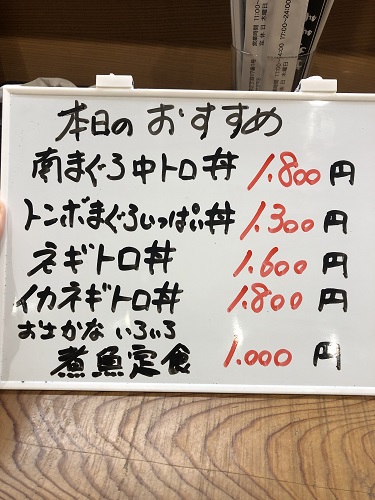 本日のおすすめ
南まぐろ中トロ丼 1.800円
トンボまぐろいっぱい丼 1.300円
ネギトロ丼 1.600円
イカネギトロ丼 1.800円
おさかないろいろ
煮魚定食 1.000円